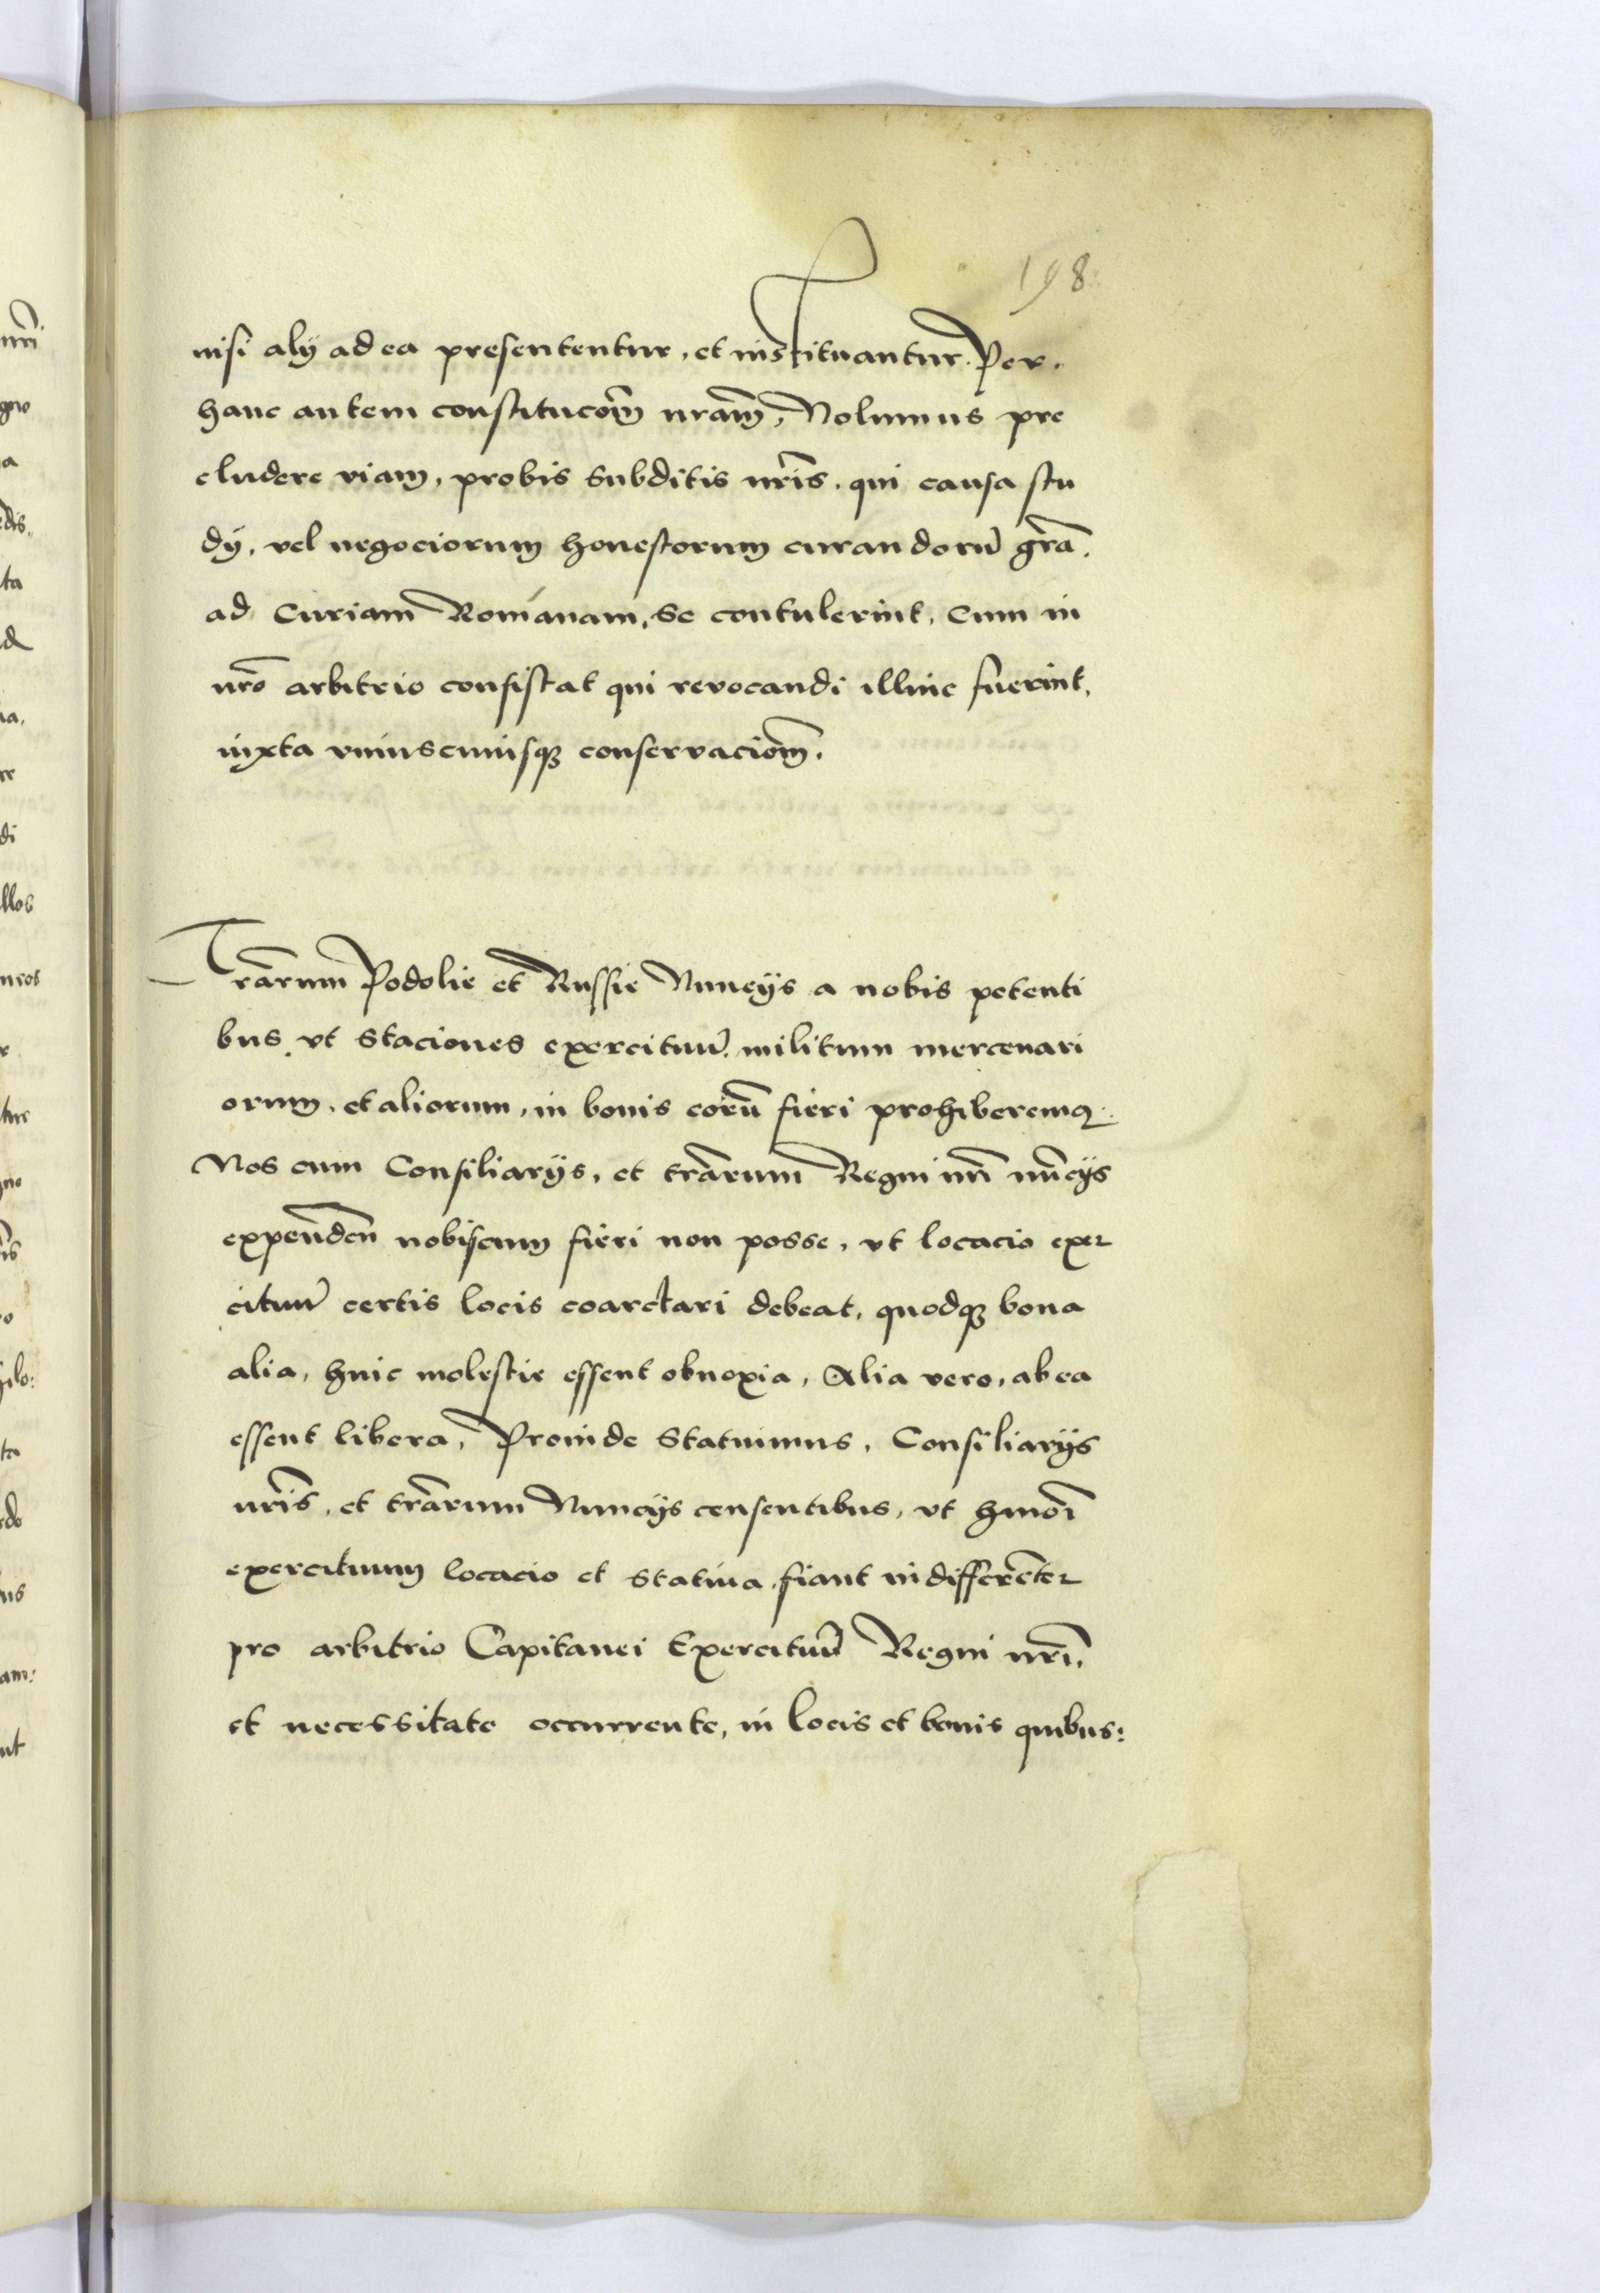 198
nisi alÿ ad ea presententur, et instituantur. Per.
hanc autem constitucōm nrām, Nolumus pre
cludere viam, probis subditis nrīs, qui causa stu
dÿ, vel negociorum honestorum curandorū grā.
ad Curiam Romanam, se contulerint, Cum in
nrō arbitrio consistat qui revocandi illinc fuerint,
iuxta vniuscuiusqȝ conservaciōm.
Trārum Podolie et Russie Nuncÿs a nobis petenti
bus, vt Staciones exercituū militum mercenari
orum, et aliorum, in bonis eorū fieri prohiberemꝯ.
Nos cum Consiliarÿs, et trārum Regni nrī nūcÿs
expendēn nobiscum fieri non posse, vt locacio exer
cituū certis locis coarctari debeat, quodqȝ bona
alia, huic molestie essent obnoxia, Alia vero, ab ea
essent libera, Proinde Statuimus, Consiliarÿs
nrīs, et trārum Nuncÿs consentibus, vt hmōi
exercituum locacio et stativa, fiant indifferēter
pro arbitrio Capitanei Exercituū Regni nrī,
et necessitate occurrente, in locis et bonis quibus: